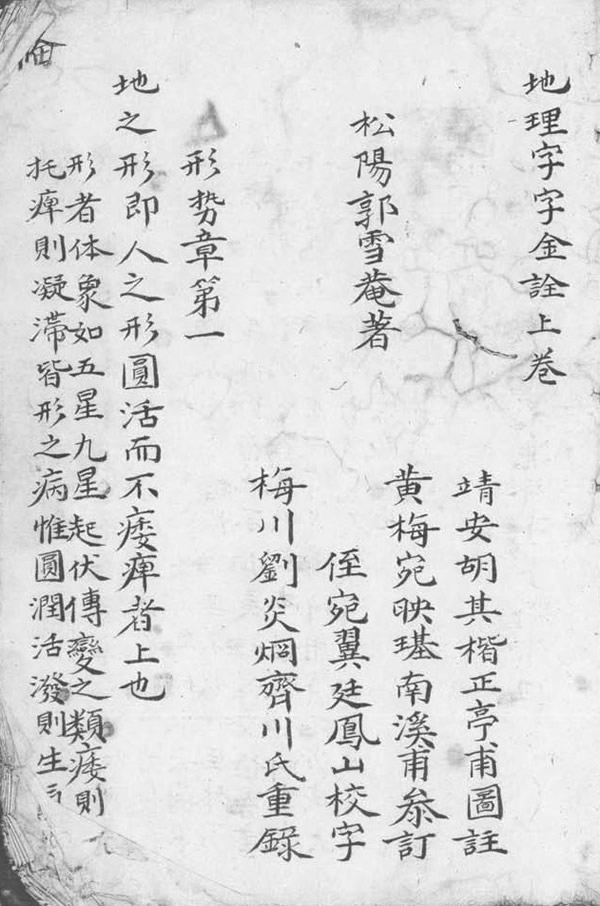 地理字字金詮上卷
靖安胡其楷正亭甫圖註
松陽郭雪菴著
黃梅宛映璂南溪甫叅訂
侄宛翼廷鳳山校字
梅川劉炎烱齊川氏重錄
形势章第一
地之形即人之形圓活而不痿痺者上也
形者体象如五星九星起伏傳變之類痿則
托痺則凝滯皆形之病惟圓潤活潑則生